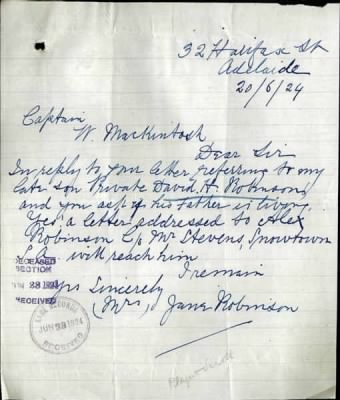 32 Halifax St
Adelaide
20/6/24
Captain
W. Mackintosh
Dear Sir
In reply to your letter referring to my
late son Private David. H. Robinson,
and you ask if his father is living.
Yes, a letter addressed to Alex
Robinson C/o Mr Stevens, Snowtown
S.A. will reach him
I remain
Yrs Sincerely
(Mrs) Jane Robinson
DECEASED
SECTION
JUN 28 1924
RECEIVED
BASE RECORDS
JUN 28 1924
RECEIVED